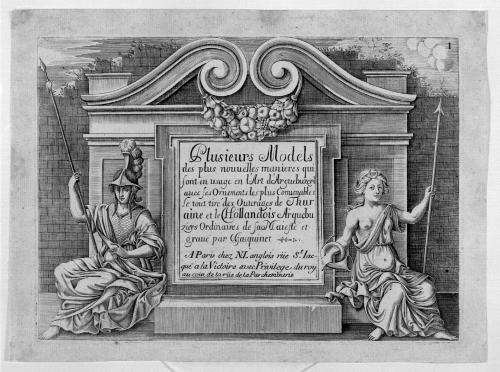 1
Plusieurs Models
des plus nouuelles manieres qui
sont en usage en l'Art de Arquebuzerie
avec ses Ornements les plus Conuenables
le tout tiré des Ouurages de Thur
aine et le Hollandois Arquebu
ziers Ordinaires de sa Maiesté et
graué par Iacquinet
A Paris chez N.L'anglois rüe St. Iac
que a la Victoire avec Privilege du roy
au coin de la rüe de la Parcheminerie